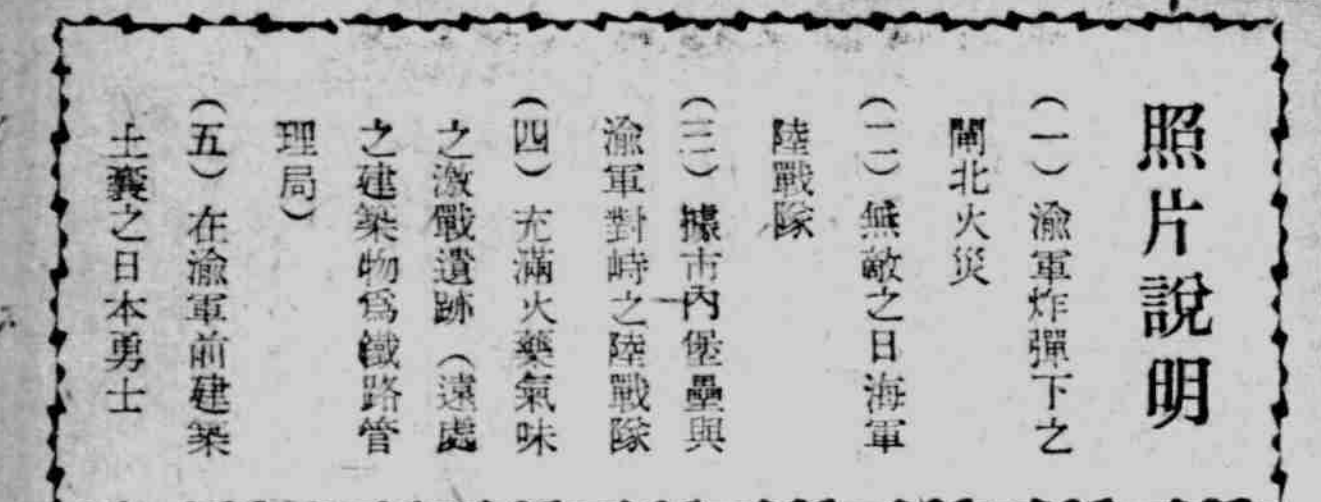 照片說明
(一) 渝軍炸彈下之
閘北火災
(二) 無敵之日海軍
陸戰隊
(三) 據市內堡壘與
渝軍對峙之陸戰隊
(四) 充滿火藥氣味
之激戰遺跡 (遠處
之建築物爲鐵路管
理局)
(五) 在渝軍前建築
土囊之日本勇士